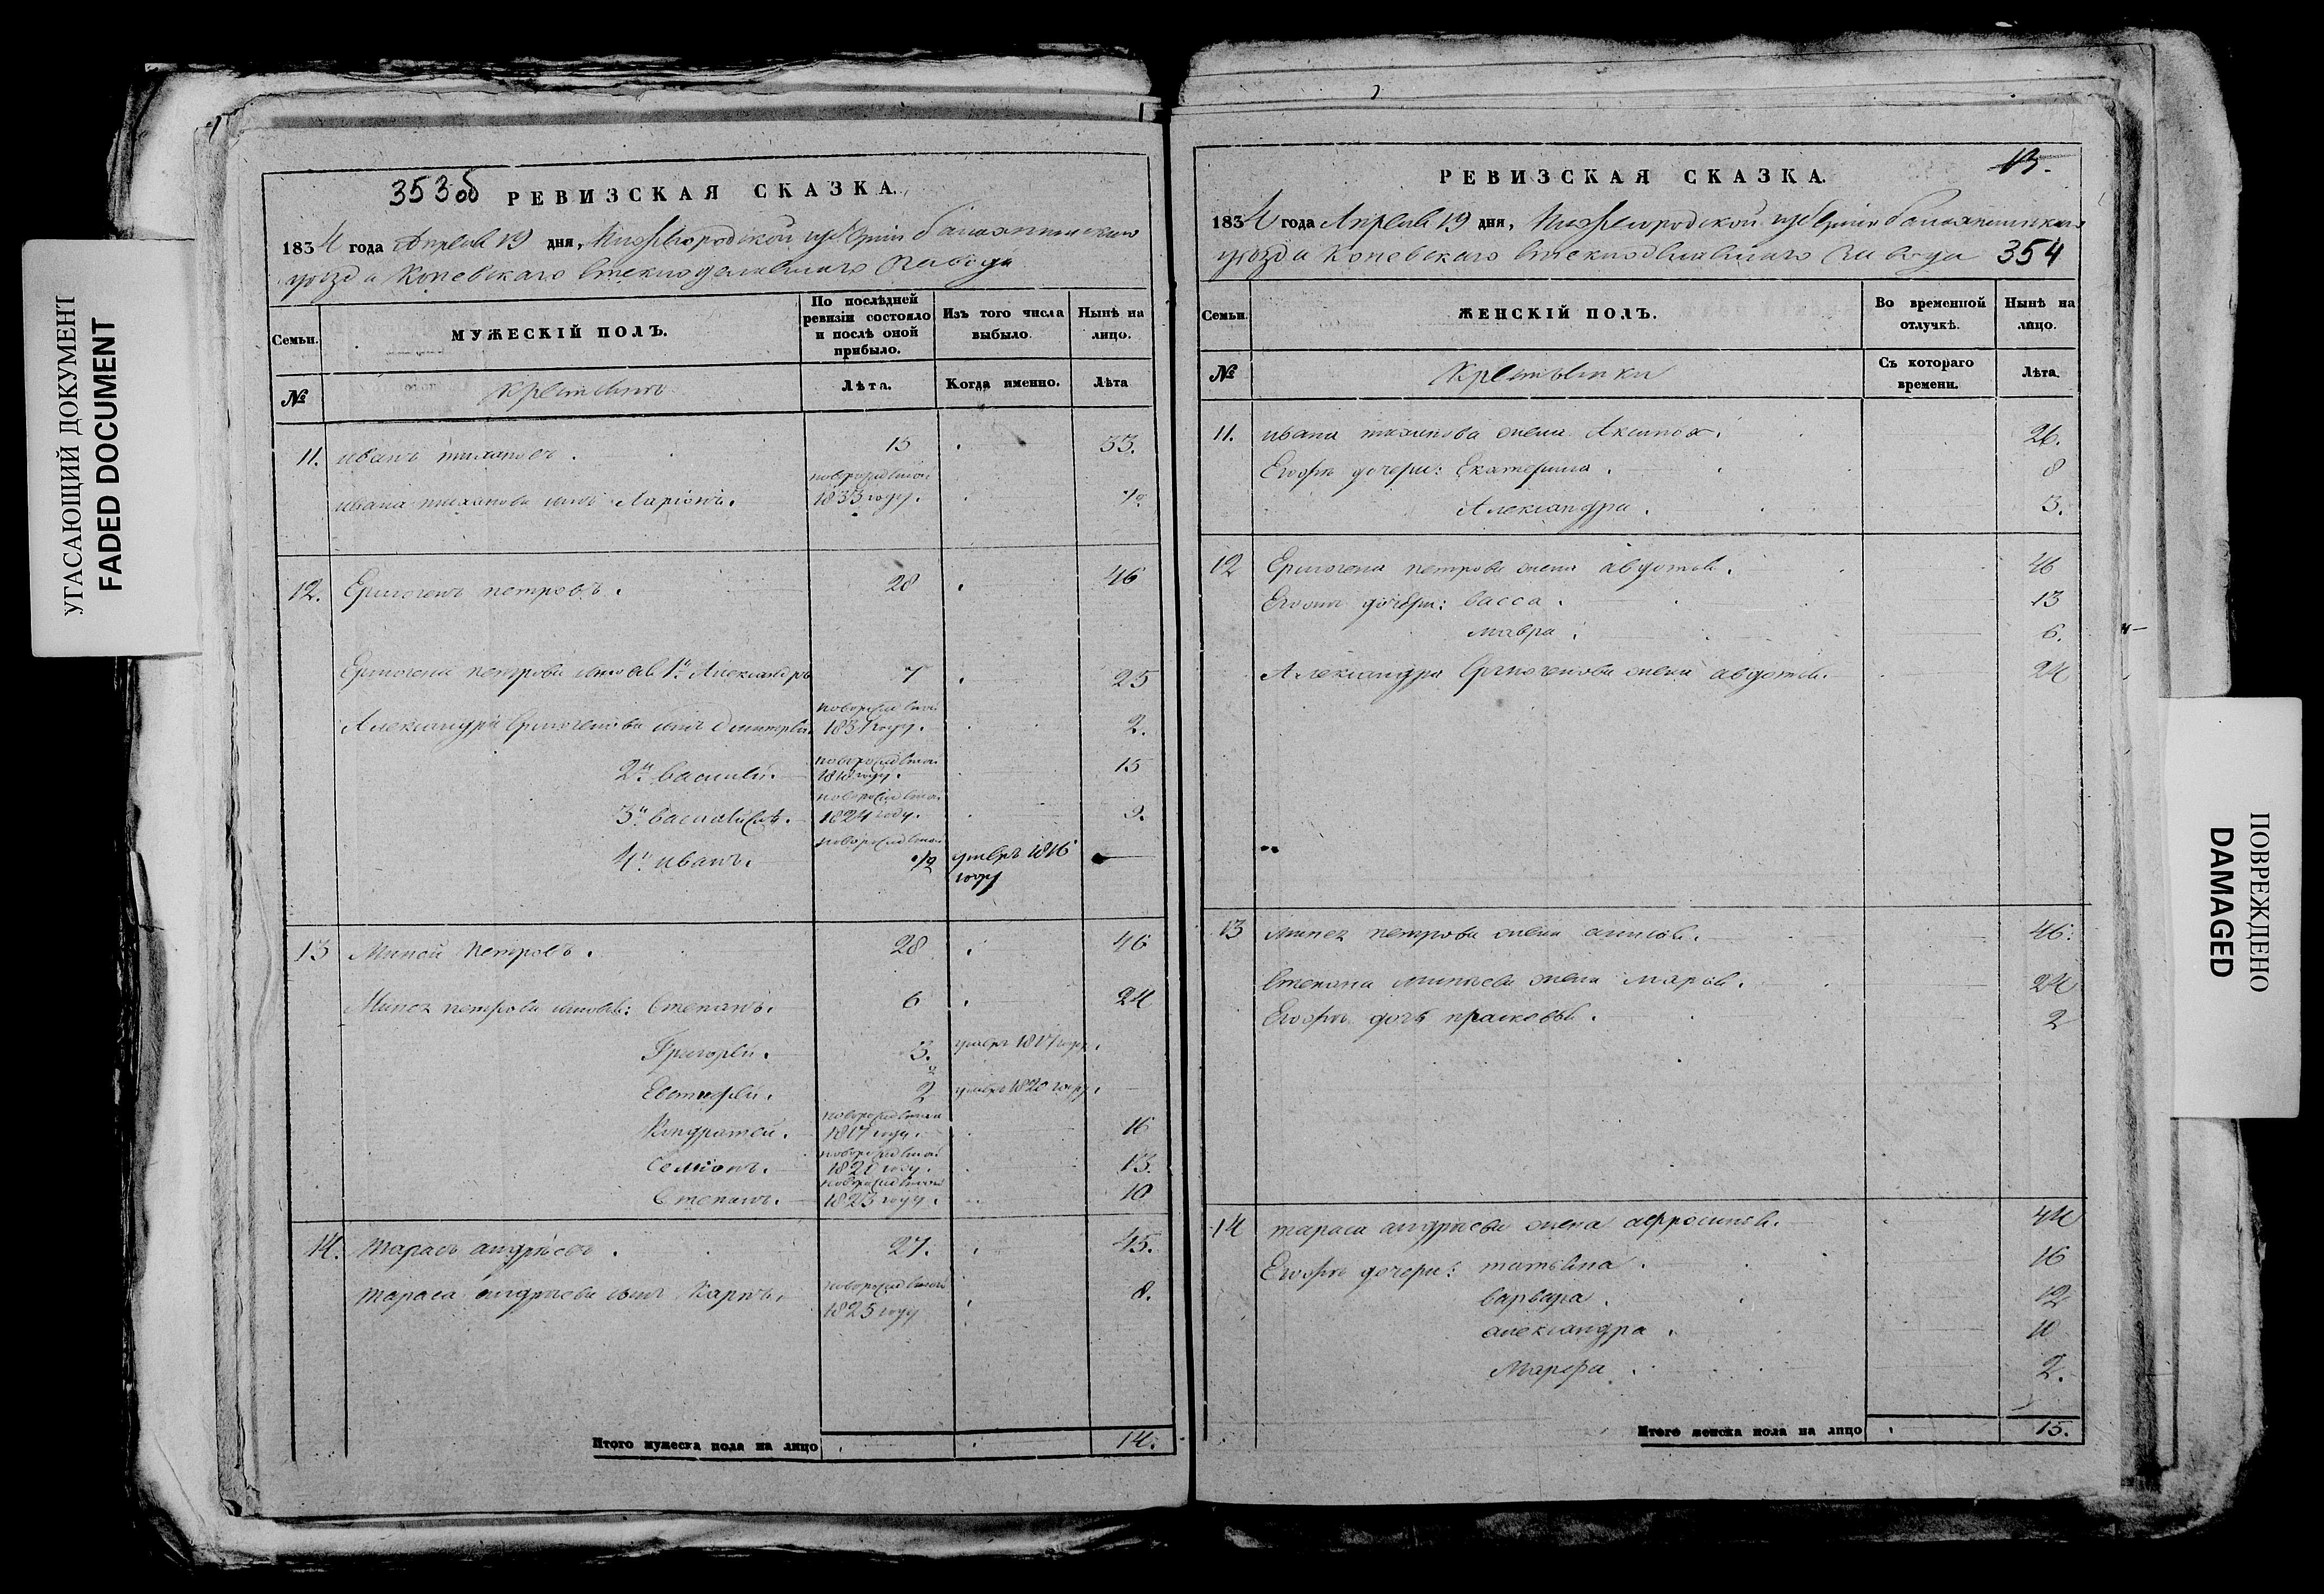 УГАСАЮЩИЙ ДОКУМЕНТ
FADED DOCUMENT
353об РЕВИЗСКАЯ СКАЗКА.
1834 года Апреля 19 дня, Нижегородской губернии балахнинскаго
уезда Коневскаго стеклоделаемаго завода
Семьи. МУЖЕСКІЙ ПОЛЪ. По послѣдней ревизіи состояло и послѣ оной прибыло. Изъ того числа выбыло. Нынѣ на лицо.
№ Крестьянъ Лѣта. Когда именно. Лѣта
11. иванъ тихановъ. 15 33.
новорожденной
ивана тиханова сынъ Ларіонъ. 1833 году.
12. Ермогенъ петровъ. 28 46
Ермогена петрова сыновья 1й Александръ 7 25
новорожденной
Александра Ермогенова сынъ Дмитрей. 1831 году. 2.
новорожденной
2й василей. 1818 году. 15
новорожденной
3й василей же. 1824 году. 9.
новорожденной
4й иванъ. 1/2 умеръ 1816 году
13 Миней Петровъ. 28 46
Минея петрова сыновья: Степанъ. 6 24
Григорей. 3. умеръ 1817 году.
Евтифей. 2 умеръ 1820 году.
новорожденной
Кондратей. 1817 году. 16
новорожденной
Семионъ. 1820 году. 13.
новорожденной
Степанъ. 1823 году. 10
14. тарасъ андрѣевъ. 27. 45.
тараса андрѣева сынъ Карпъ. новорожденной 8.
1825 году
Итого мужеска пола на лицо 14.
13.
РЕВИЗСКАЯ СКАЗКА.
1834 года Апреля 19 дня, Нижегородской губернии балахнинскаго
уезда Коневскаго стеклоделаемаго завода 354
Семьи. ЖЕНСКІЙ ПОЛЪ. Во временной отлучкѣ. Нынѣ на лицо.
№ Крестьянки Съ котораго времени. Лѣта.
11. ивана тиханова жена Аксинья. 26.
Егожъ дочери: Екатерина. 8
Александра. 3.
12 Ермогена петрова жена авдотья. 46
Егожъ дочери: васса. 13
мавра. 6.
Александра Ермогенова жена авдотья. 24
13 Минея петрова жена анисья. 46.
Степана минеева жена марья. 24
Егожъ дочь прасковья. 2
14 тараса андрѣева жена афросинья. 44
Егожъ дочери: татьяна. 16
варвара. 12
александра. 10
Марфа. 2.
Итого женска пола на лицо 15.
ПОВРЕЖДЕНО
DAMAGED